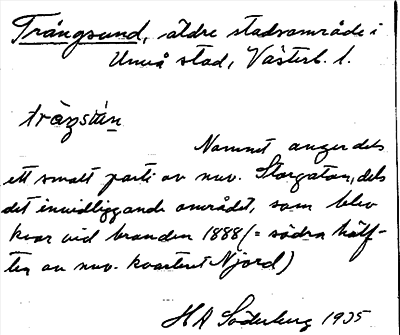 Trångsund, äldre stadsområde i
Umeå stad, Västerb. l.
Namnet anger dels
ett smalt parti av nuv. Storgatan, dels
det invidliggande området, som blev
kvar vid branden 1888 (= södra hälf-
ten av nuv. kvarteret Njord)
HA Söderberg 1935